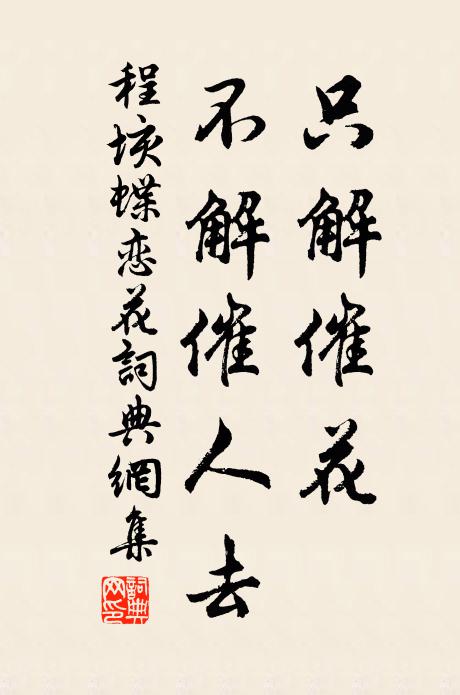 只解催花
不解催人去
程垓蝶恋花詞典網集
詞典
网印